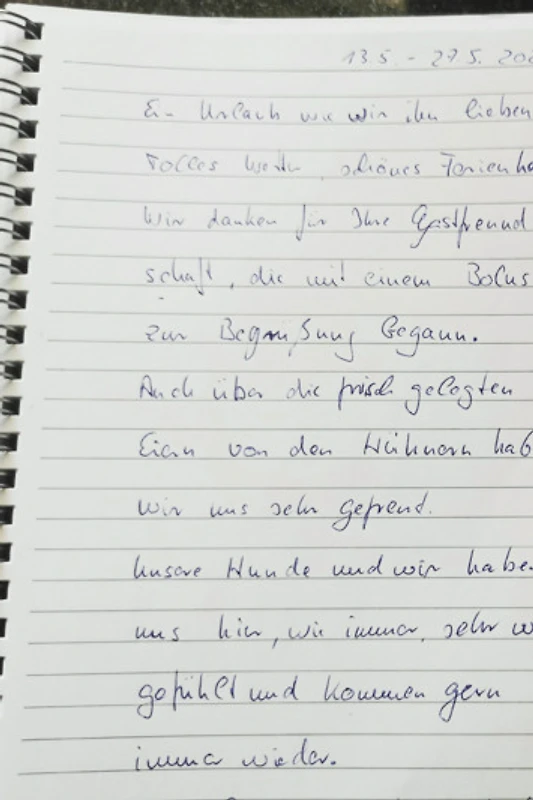 13.5. - 27.5. 202
Ein Urlaub wie wir ihn lieben
Tolles Wetter, schönes Ferienha
Wir danken für Ihre Gastfreund
schaft, die mit einem Bolus
zur Begrüßung begann.
Auch über die frisch gelegten
Eiern von den Hühnern hab
wir uns sehr gefreut.
Unsere Hunde und wir habe
uns hier, wie immer, sehr w
gefühlt und kommen gern
immer wieder.